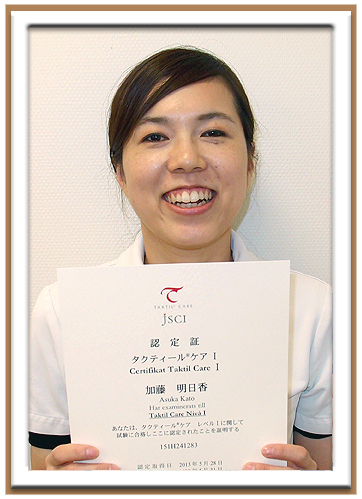 TAKTIL® CARE
JSCI
認定証
タクティール®ケア I
Certifikat Taktil Care I
加藤 明日香
Asuka Kato
Har examinerats till
Taktil Care Nivå I
あなたは、タクティール®ケア レベルIに関して
試験に合格しここに認定されたことを証明する
151H241283
認定取得日 2013年5月28日